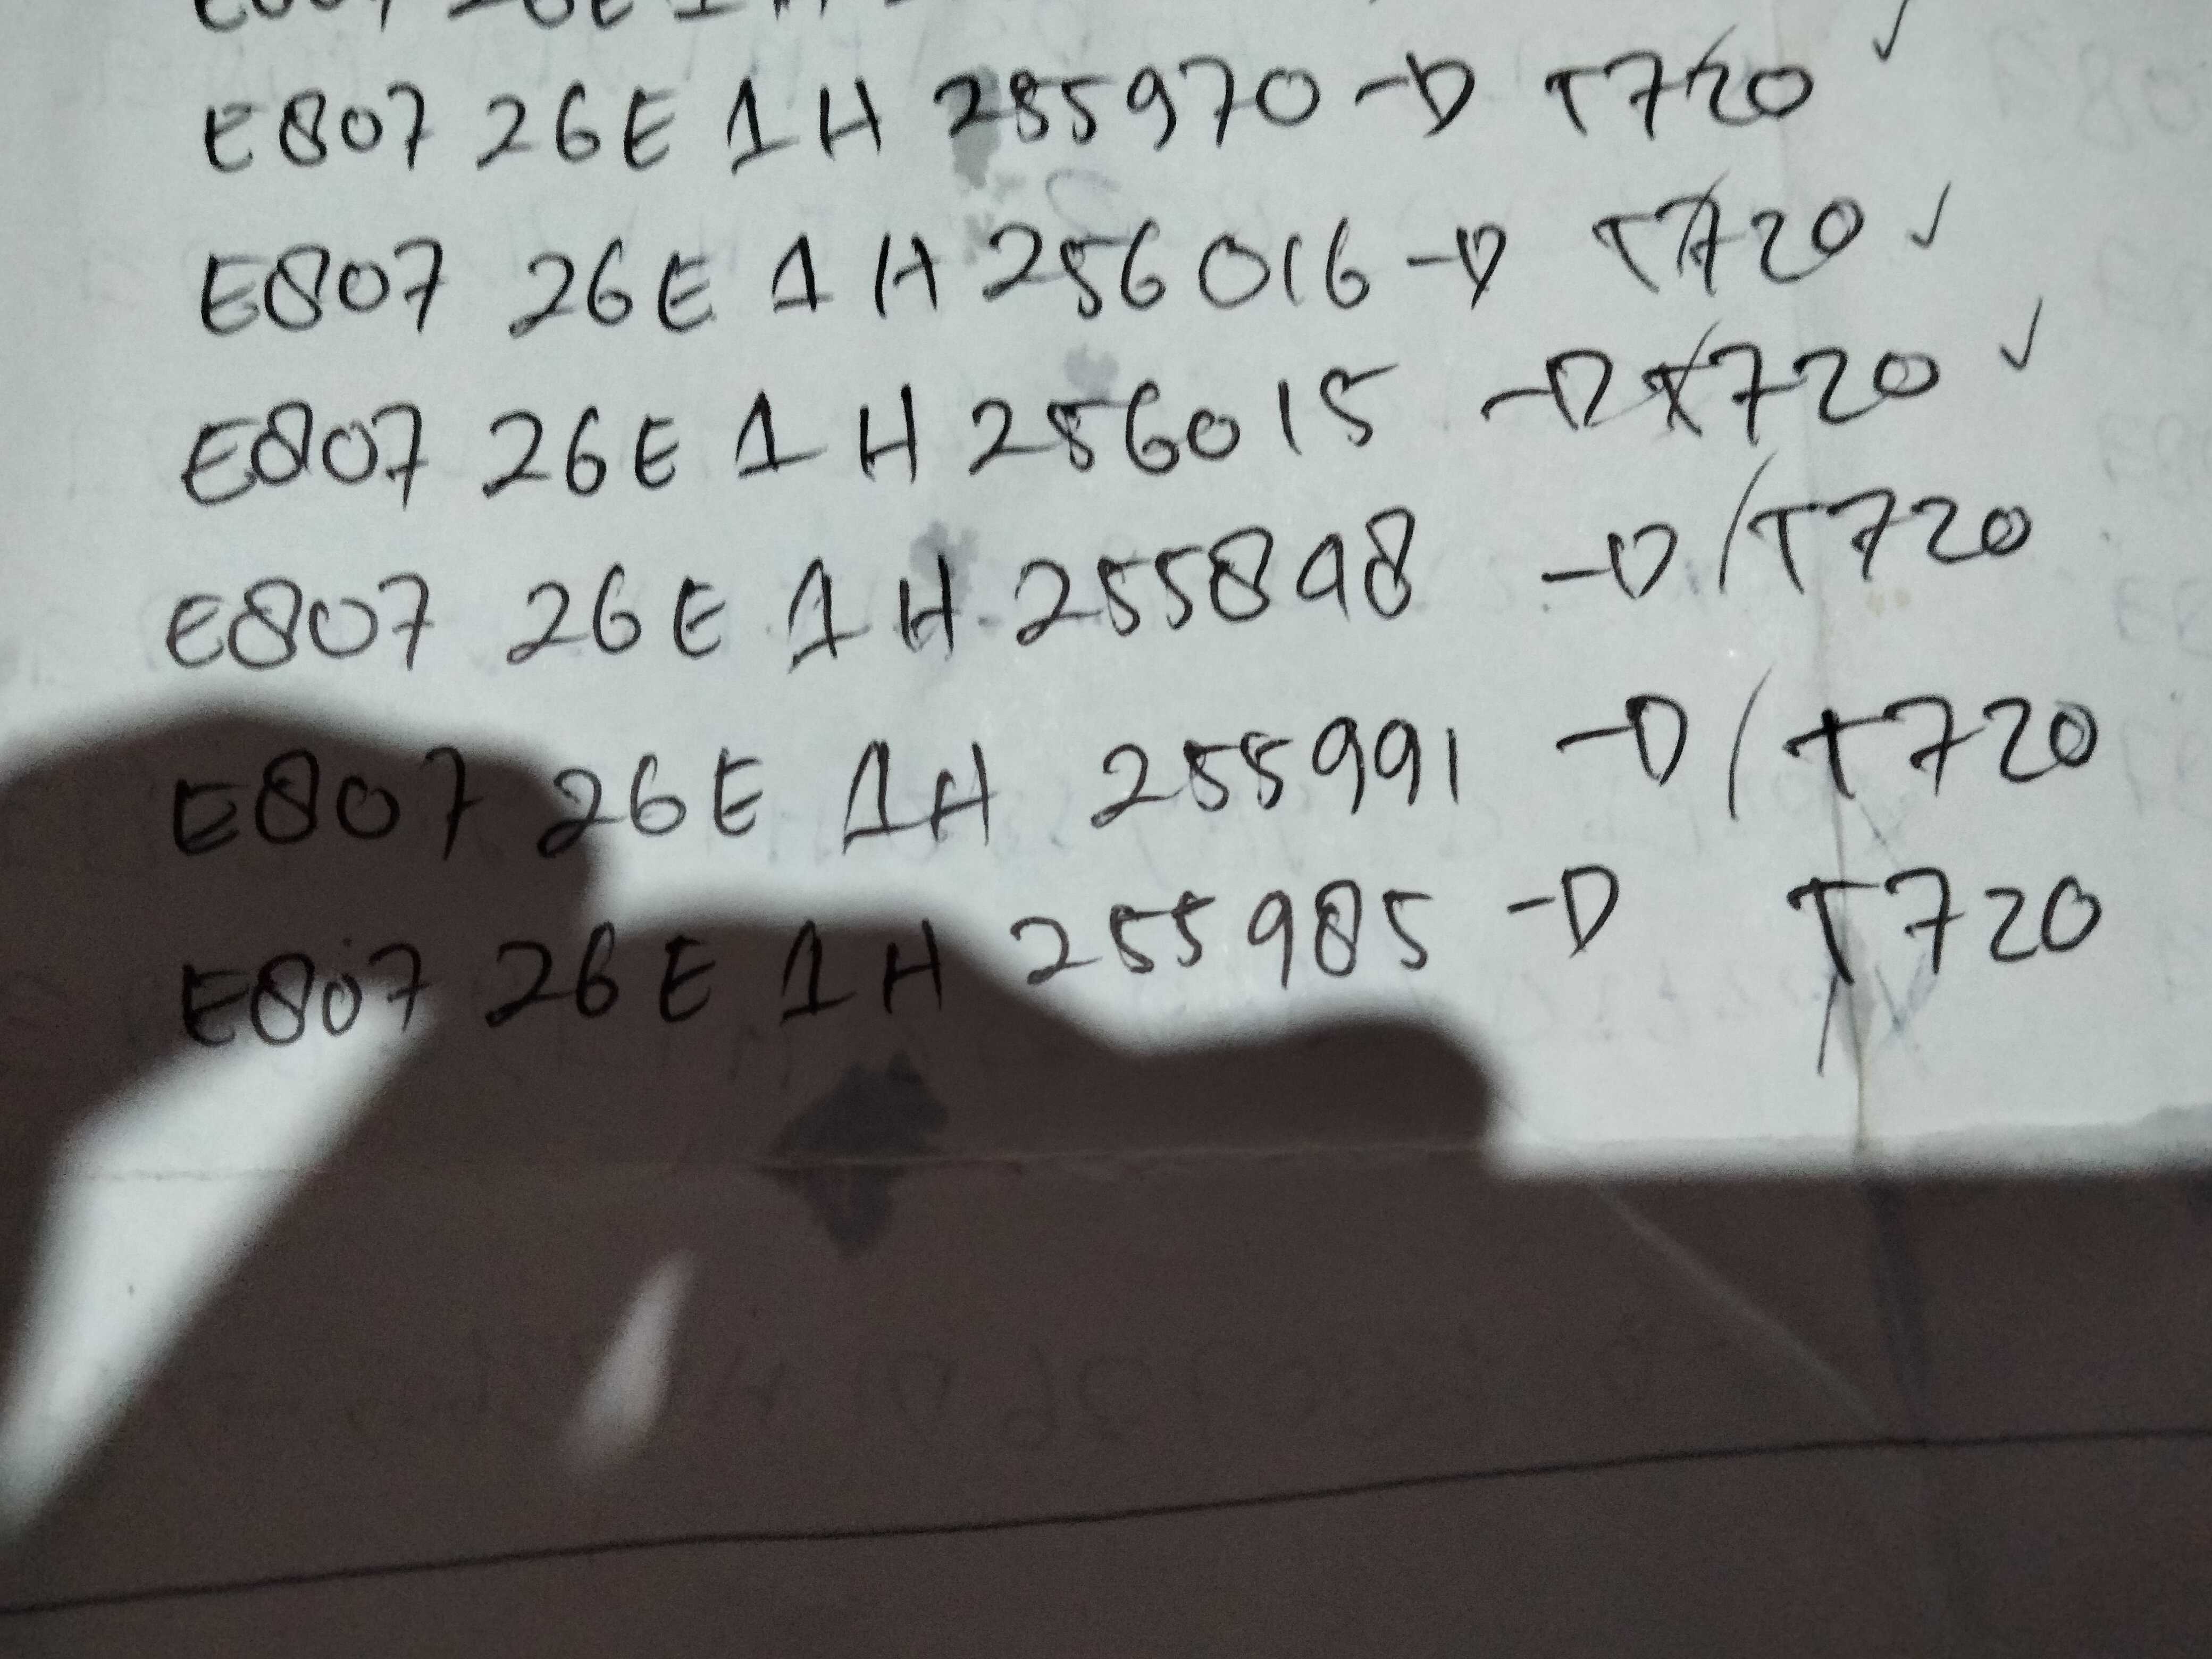 E807 26E 1H 255970 -D T720 ✓
E807 26E 1H 256016 -D T720 ✓
E807 26E 1H 256015 -D T720 ✓
E807 26E 1H 255898 -D/T720
E807 26E 1H 255991 -D/T720
E807 26E 1H 255985 -D T720